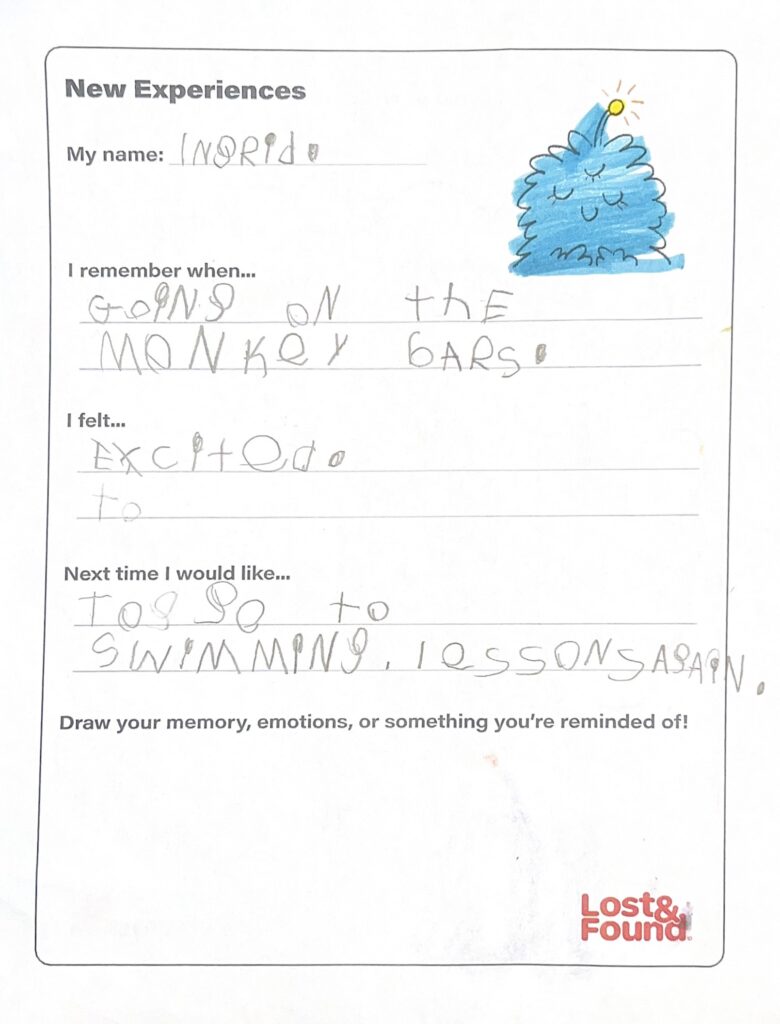 New Experiences
My name: INgRid.
I remember when...
GoiNg oN thE
MONKey bARs.
I felt...
Excited.
to
Next time I would like...
Tog go to
SWiMMiNg. lessONsAgAiN.
Draw your memory, emotions, or something you're reminded of!
Lost&
Found